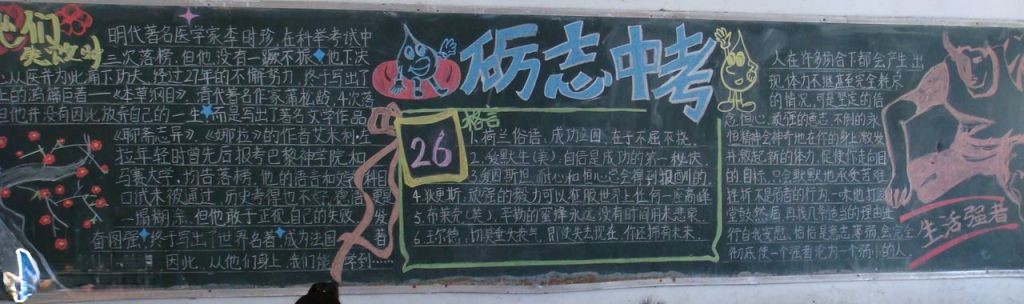 他们
失败时
明代著名医学家李时珍在科举考试中
三次落榜,但他没有一蹶不振,他下决
心从医并为此痛下功夫,经过27年的不懈努力,终于写出了
上的鸿篇巨著——《本草纲目》清代著名作家蒲松龄,4次落
但他并没有因此放弃自己的一生,而是写出了著名文学作品
《聊斋志异》,《娜拉》的作者艾米利·左
拉年轻时曾先后报考巴黎神学院和
马赛大学,均告落榜,他的语言和
口试未被通过,历史考得也不好,德语
一塌糊涂,但他敢于正视自己的失败,发
奋图强,终于写出了世界名著,成为法国著
因此,从他们身上,我们能学到……
砺志中考
格言
26
1.荷兰俗语:成功立因,在于不屈不挠.
2.爱默生(美):自信是成功的第一秘诀.
3.爱因斯坦:耐心和恒心总会得到报酬的.
4.狄更斯:顽强的毅力可以征服世界上任何一座高峰
5.布莱克(英):辛勤的蜜蜂永远没有时间用来悲哀.
6.王尔德:切莫垂头丧气,即使失去现在,你还拥有未来.
人在许多场合下都会产生出
现体力不继直至完全耗尽
的情况,可是坚定的信
念恒心,顽强的意志,不倒的永
恒精神会神奇地在你的身上散发
并激起新的体力,是使你走向目
的目标,只会默默地承受苦难
挫折不是弱者的行为,一味地打退
堂鼓然后再找几条适当的理由进
行自我安慰,恰恰是意志薄弱会完全
彻底使一个强者沦为一个弱小的人.
生活强者